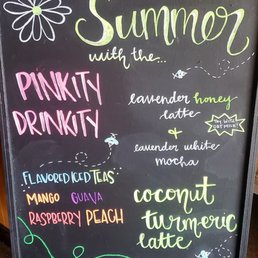 Summer
with the...
PINKITY
DRINKITY
lavender honey
latte
&
lavender white
mocha
FLAVORED ICED TEAS
MANGO GUAVA
RASPBERRY PEACH
coconut
turmeric
latte